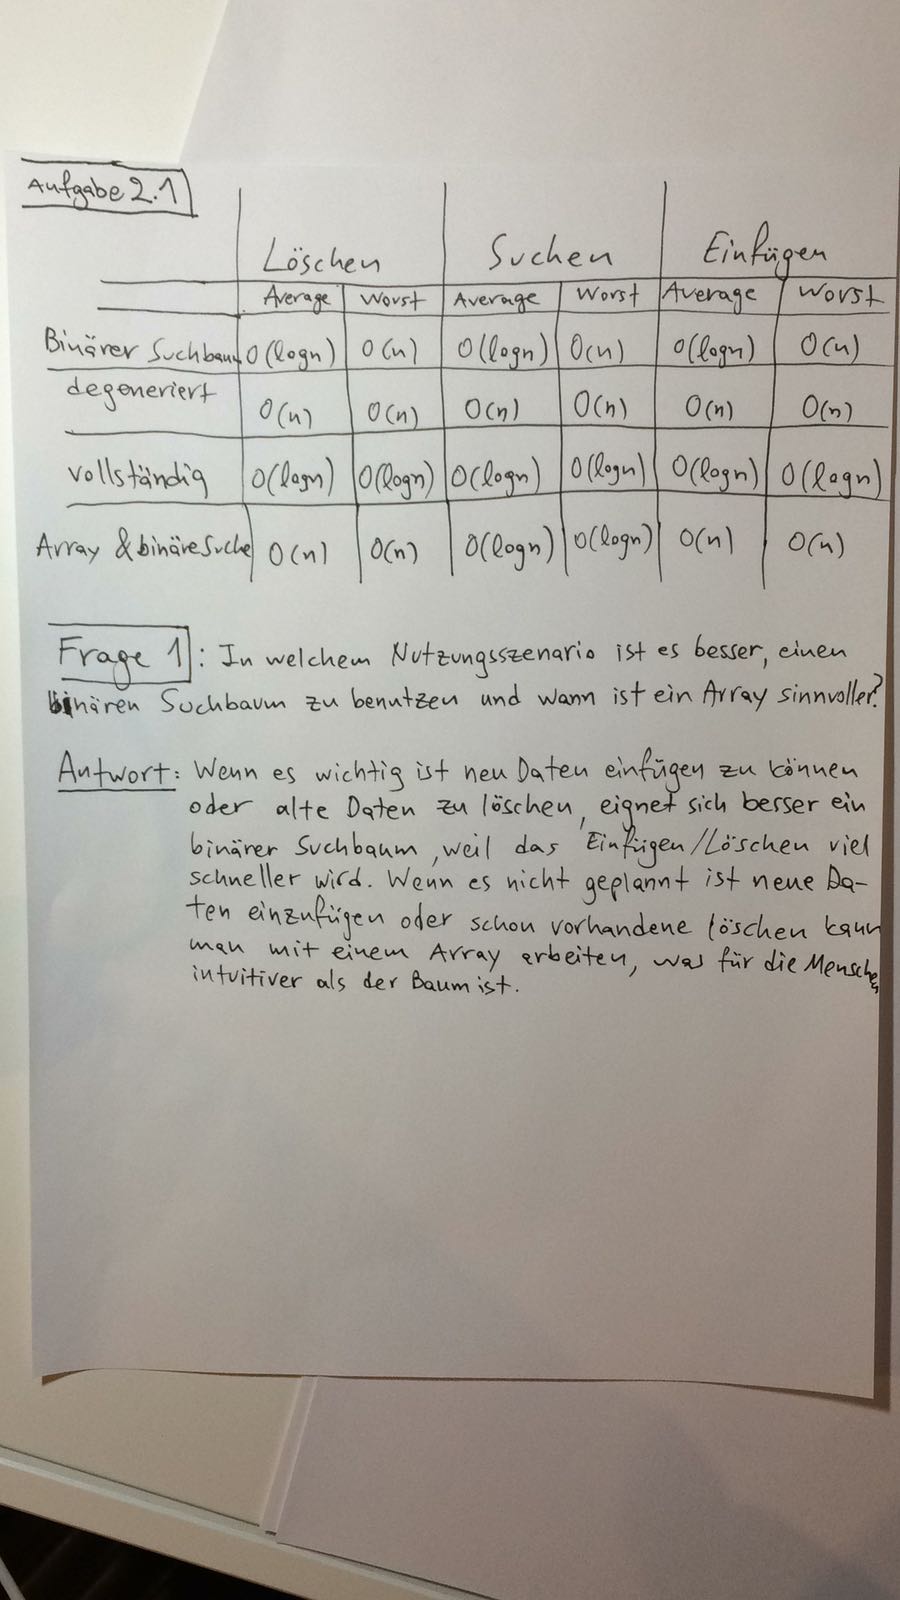 Aufgabe 2.1
Löschen Suchen Einfügen
Average Worst Average Worst Average Worst
Binärer Suchbaum O(logn) O(n) O(logn) O(n) O(logn) O(n)
degeneriert O(n) O(n) O(n) O(n) O(n) O(n)
vollständig O(logn) O(logn) O(logn) O(logn) O(logn) O(logn)
Array & binäre Suche O(n) O(n) O(logn) O(logn) O(n) O(n)
Frage 1: In welchem Nutzungsszenario ist es besser, einen
binären Suchbaum zu benutzen und wann ist ein Array sinnvoller?
Antwort: Wenn es wichtig ist neu Daten einfügen zu können
oder alte Daten zu löschen, eignet sich besser ein
binärer Suchbaum, weil das Einfügen/Löschen viel
schneller wird. Wenn es nicht geplannt ist neue Da-
ten einzufügen oder schon vorhandene löschen kann
man mit einem Array arbeiten, was für die Menschen
intuitiver als der Baum ist.